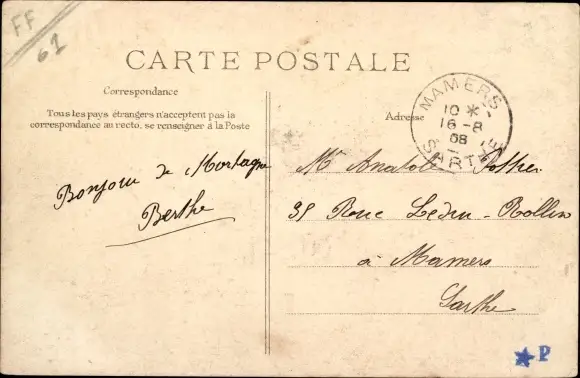 FF
61
CARTE POSTALE
Correspondance
Tous les pays étrangers n'acceptent pas la
correspondance au recto. se renseigner à la Poste
Adresse
MAMERS
10 *
16 - 8
08
SARTHE
Bonjour de Mortagne
Berthe
Mr Anatole
31 Rue Ledru-Rollin
à Mamers
Sarthe
P